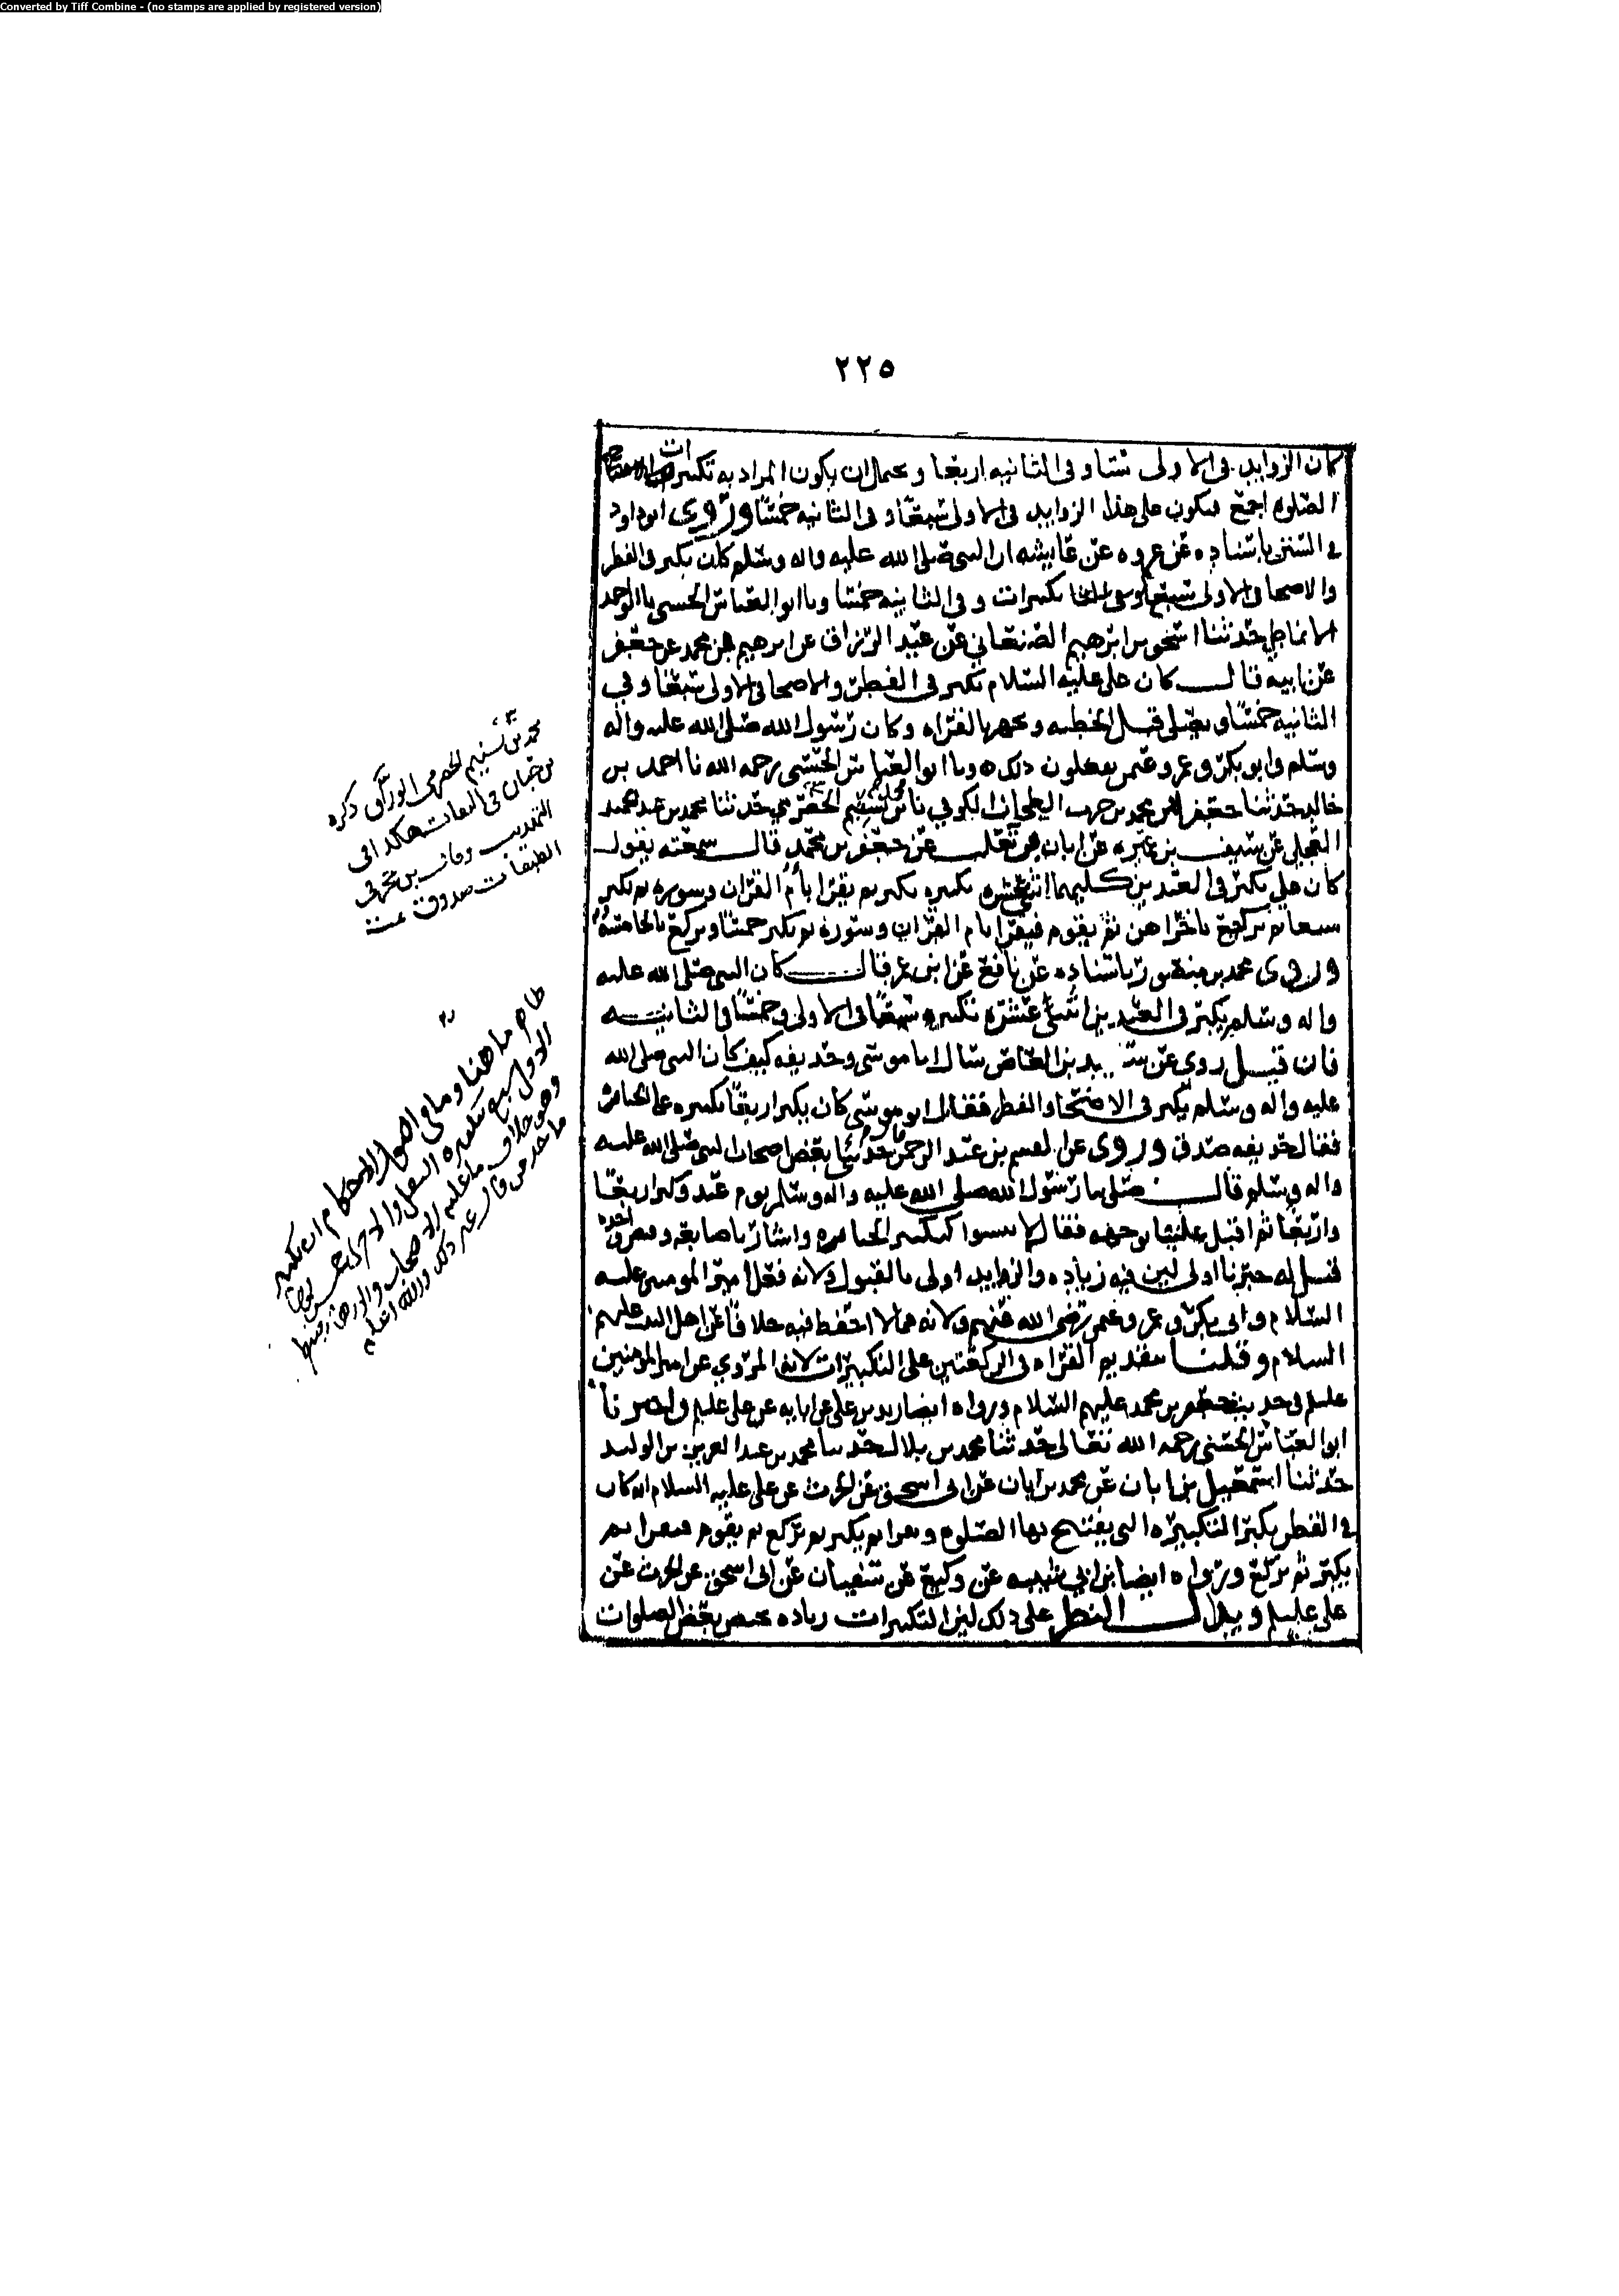 Converted by Tiff Combine - (no stamps are applied by registered version)
٢٢٥
كان الزوايد فى الاولى ستا وفى الثانيه اربعا ويحتمل ان يكون المراد به تكبيرات
الصلوه اجمع فيكون على هذا الزوايد فى الاولى سبعا وفى الثانيه خمسا وروى ابو داود
فى السنن باسناده عن عروه عن عايشه ان النبى صلى الله عليه واله وسلم كان يكبر فى الفطر
والاضحى فى الاولى سبع تكبيرات وفى الثانيه خمسا ونا ابو العباس الحسنى نا
الانماطي حدثنا اسحق بن ابرهيم الصنعاني عن عبد الرزاق عن ابرهيم بن محمد عن جعفر
عن ابيه قال كان على عليه السلام يكبر فى الفطر والاضحى فى الاولى سبعا وفي
الثانيه خمسا ويصلى قبل الخطبه ويجهر بالقراه وكان رسول الله صلى الله عليه واله
وسلم وابو بكر وعمر وعثمن يفعلون ذلك ونا ابو العباس الحسنى رحمه الله نا احمد بن
خالد حدثنا جعفر بن محمد بن الكوفي نا محمد بن تسنيم الحضرمي حدثنا محمد بن
العجلى عن سيف بن عميره عن ابان بن تغلب عن جعفر بن محمد قال سمعته يقول
كان على يكبر فى العيدين كليهما اثنتي عشره تكبيره يكبر ثم يقرا بام القران وسوره ثم يكبر
سبعا ثم يركع باخراهن ثم يقوم فيقرا بام القران وسوره ثم يكبر خمسا ويركع بالخامسه
وروى محمد بن منصور باسناده عن نافع عن ابن عمر قال كان النبى صلى الله عليه
واله وسلم يكبر فى العيدين اثنتى عشره تكبيره سبعا فى الاولى وخمسا فى الثانيه
فان قيل روي عن سعيد بن العاص سال ابا موسى وحذيفه كيف كان النبى صلى الله
عليه واله وسلم يكبر فى الاضحى والفطر فقال ابو موسى كان يكبر اربعا تكبيره على الجنايز
فقال حذيفه صدق وروى عن القسم بن عبد الرحمن حدثنى بعض اصحاب النبى صلى الله عليه
واله وسلم قال صلى بنا رسول الله صلى الله عليه واله وسلم يوم عيد وكبر اربعا
واربعا ثم اقبل علينا بوجهه فقال لا تنسوا كتكبير الجنايز واشار باصابعه وقبض
قيل له خبرنا اولى لان فيه زياده والزوايد اولى بالقبول ولانه فعل امير المومنين عليه
السلام وابى بكر وعمر وعثمن رضى الله عنهم ولانه مما لا احفظ فيه خلافا عن اهل البيت عليهم
السلام وقلنا بتقديم القراه فى الركعتين على التكبيرات لانه المروي عن امير المومنين
عليلم فى حديث جعفر بن محمد عليهم السلام ورواه ايضا زيد بن على عن ابايه عن على عليلم واخبرنا
ابو العباس الحسنى رحمه الله تعالى حدثنا محمد بن بلال حدثنا محمد بن عبد العزيز بن الوليد
حدثنا اسمعيل بن ابان عن محمد بن ابان عن ابى اسحق عن الحرث عن على عليه السلام انه كان
فى الفطر يكبر التكبيره التى يفتتح بها الصلوه ويقرا ثم يكبر ثم يركع ثم يقوم فيقرا ثم
يكبر ثم يركع ورواه ايضا ابن ابي شيبه عن وكيع عن سفيان عن ابى اسحق عن الحرث عن
على عليلم ويدل النظر على ذلك لان التكبيرات زياده تختص ببعض الصلوات
محمد بن تسنيم الحضرمى الوراق ذكره
بن حبان فى الثقات هكذا فى
التهذيب
الطبقات صدوق
ما هنا وما فى اصول الاحكام ان يكبر
والله اعلم